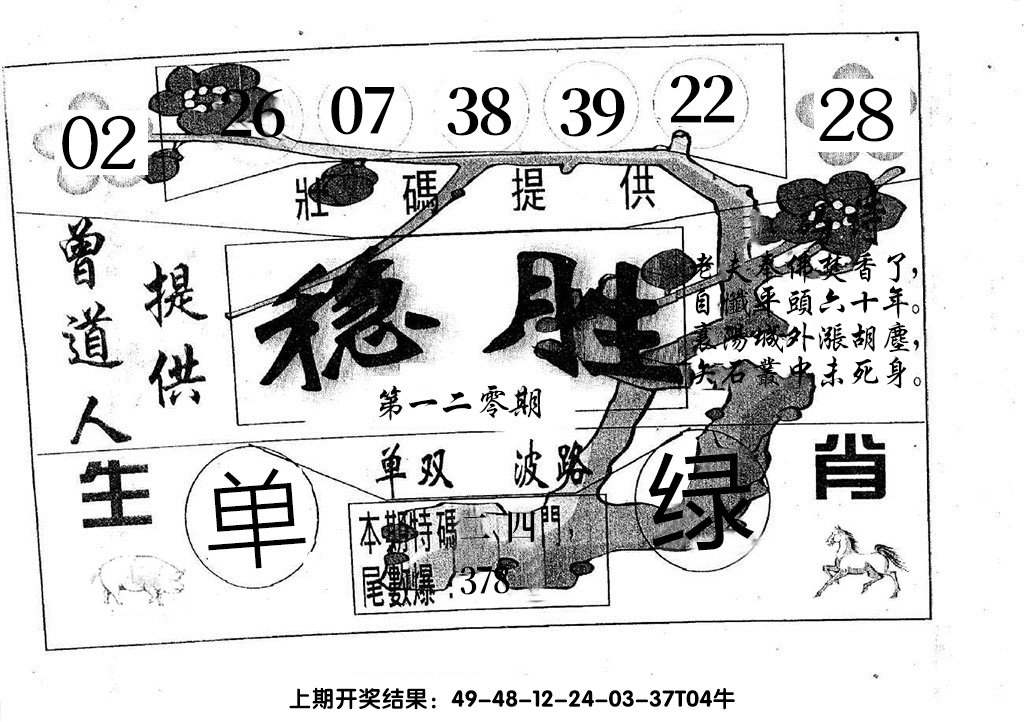 02 26 07 38 39 22 28
壯碼提供
曾道人
提供
稳胜
第一二零期
老夫奉佛焚香了，
自懺平頭六十年。
襄陽城外漲胡塵，
矢石叢中未死身。
生肖
单双 波路
单
绿
本期特碼二、四門，
尾數爆：378
上期开奖结果：49-48-12-24-03-37T04牛